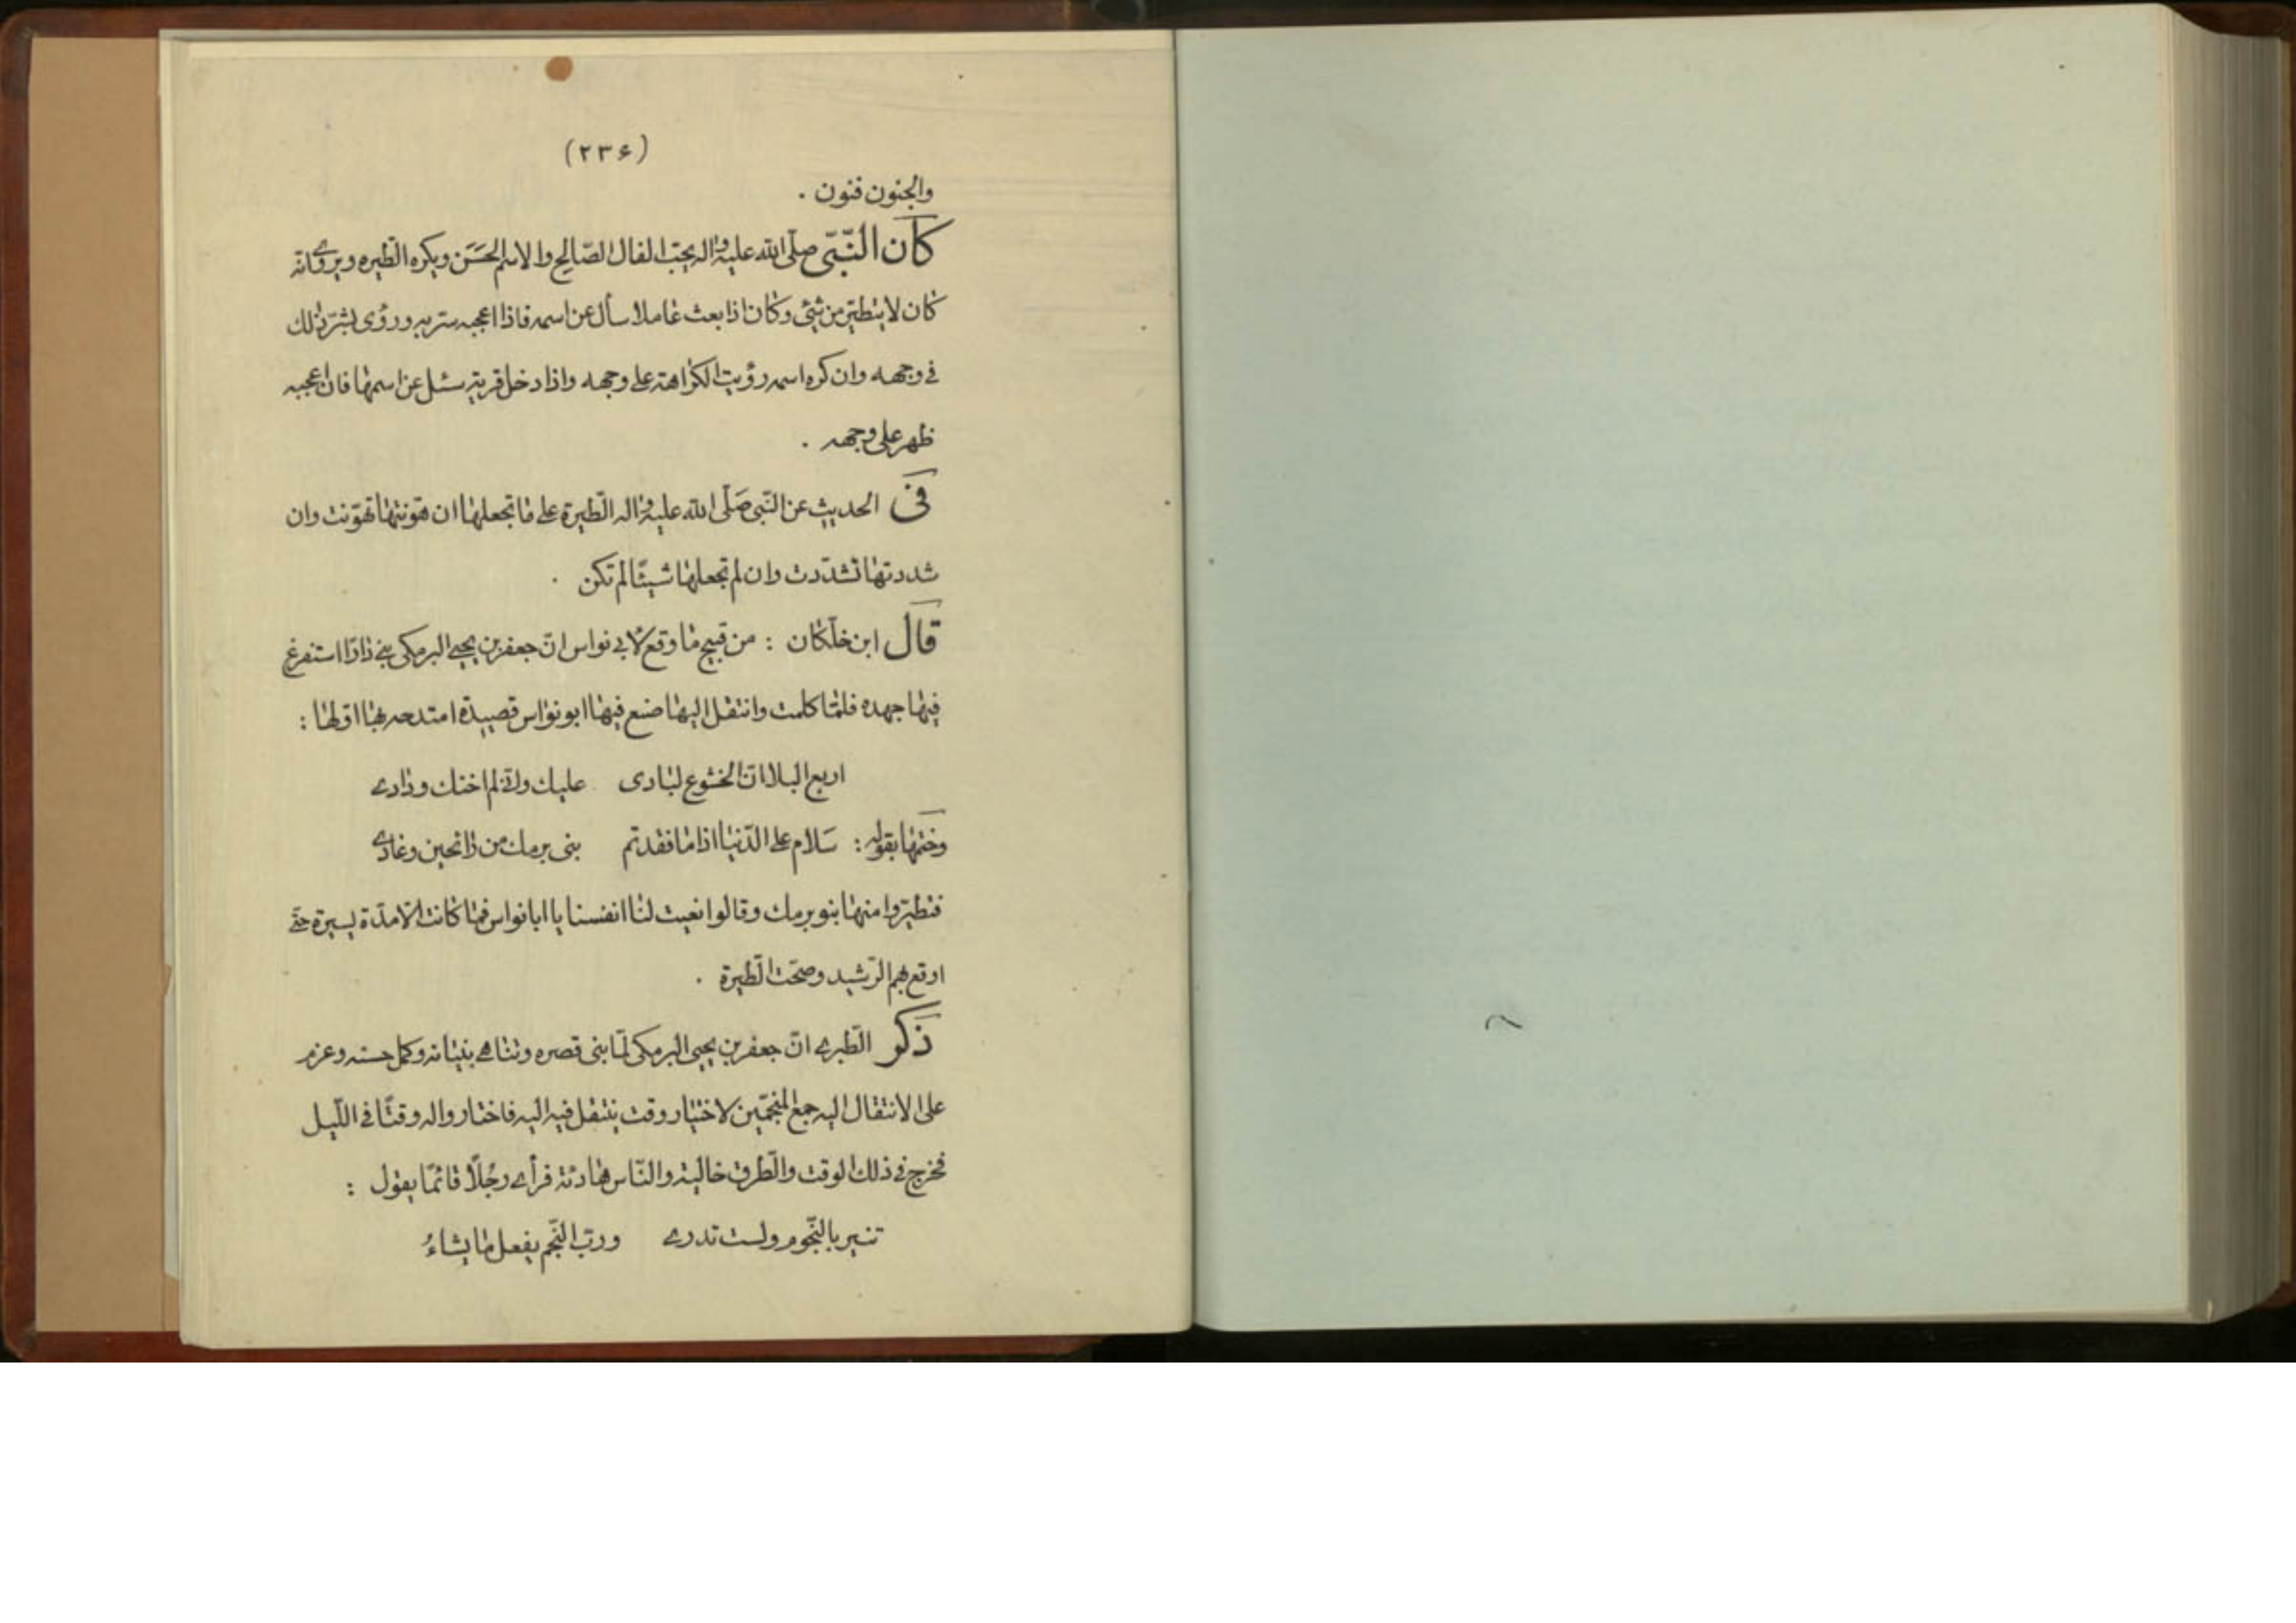 (۲۳۶)
والجنون فنون .
كان النّبىّ صلّى الله عليه واله يحبّ الفال الصّالح والاسم الحَسَن ويكره الطّيره ويروى انه
كان لا يتطيّر من شئ وكان اذا بعث عاملا سأل عن اسمه فاذا اعجبه سرّ به ورؤى بشر ذلك
فى وجهه وان كره اسمه رؤيت الكراهة على وجهه واذا دخل قرية سئل عن اسمها فان اعجبه
ظهر على وجهه .
فى الحديث عن النّبى صَلّى الله عليه واله الطّيرة على ما تجعلها ان هوّنتها تهوّنت وان
شددتها تشدّدت وان لم تجعلها شيئًا لم تكن .
قال ابن خلّكان : من قبيح ما وقع لابى نواس انّ جعفر بن يحيى البرمكى بنى دارًا استفرغ
فيها جهده فلمّا كملت وانتقل اليها صنع فيها ابو نواس قصيدة امتدحه بها اوّلها :
اربع البلا انّ الخشوع لبادى عليك وانّى لم اخنك ودادى
وختمها بقوله : سَلام على الدّنيا اذا ما فقدتم بنى برمك من رائحين وغادى
فتطيّروا منها بنو برمك وقالوا نعيت لنا انفسنا يا ابا نواس فما كانت الّا مدّة يسيرة حتّى
اوقع بهم الرّشيد وصحّت الطّيرة .
ذكر الطّبرى انّ جعفر بن يحيى البرمكى لمّا بنى قصره وتناهى بنيانه وكمل حسنه وعزم
على الانتقال اليه جمع المنجّمين لاختيار وقت ينتقل فيه اليه فاختاروا له وقتًا فى اللّيل
فخرج فى ذلك الوقت والطّرق خالية والنّاس هادئة فرأى رجُلًا قائمًا يقول :
تسير بالنّجوم ولست تدرى وربّ النّجم يفعل ما يشاءُ